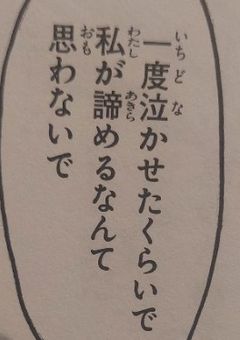 一度泣かせたくらいで
私が諦めるなんて
思わないで